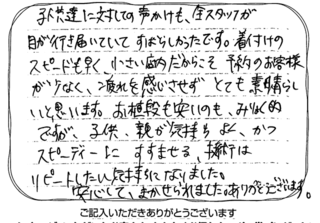 子供達に対しての声かけも、全スタッフが
目が行き届いていて すばらしかったです。着付けの
スピードも早く、小さい店内だからこそ 予約のお客様
が少なく、疲れを感じさせず とても素晴らし
いと思います。お値段も安いのも、みりょく的
ですが、子供、親が気持ちよく、かつ
スピーディーに すすませる、撮影は
リピートしたい気持ちになりました。
安心して、まかせられました。ありがとうございます。
ご記入いただきありがとうございます